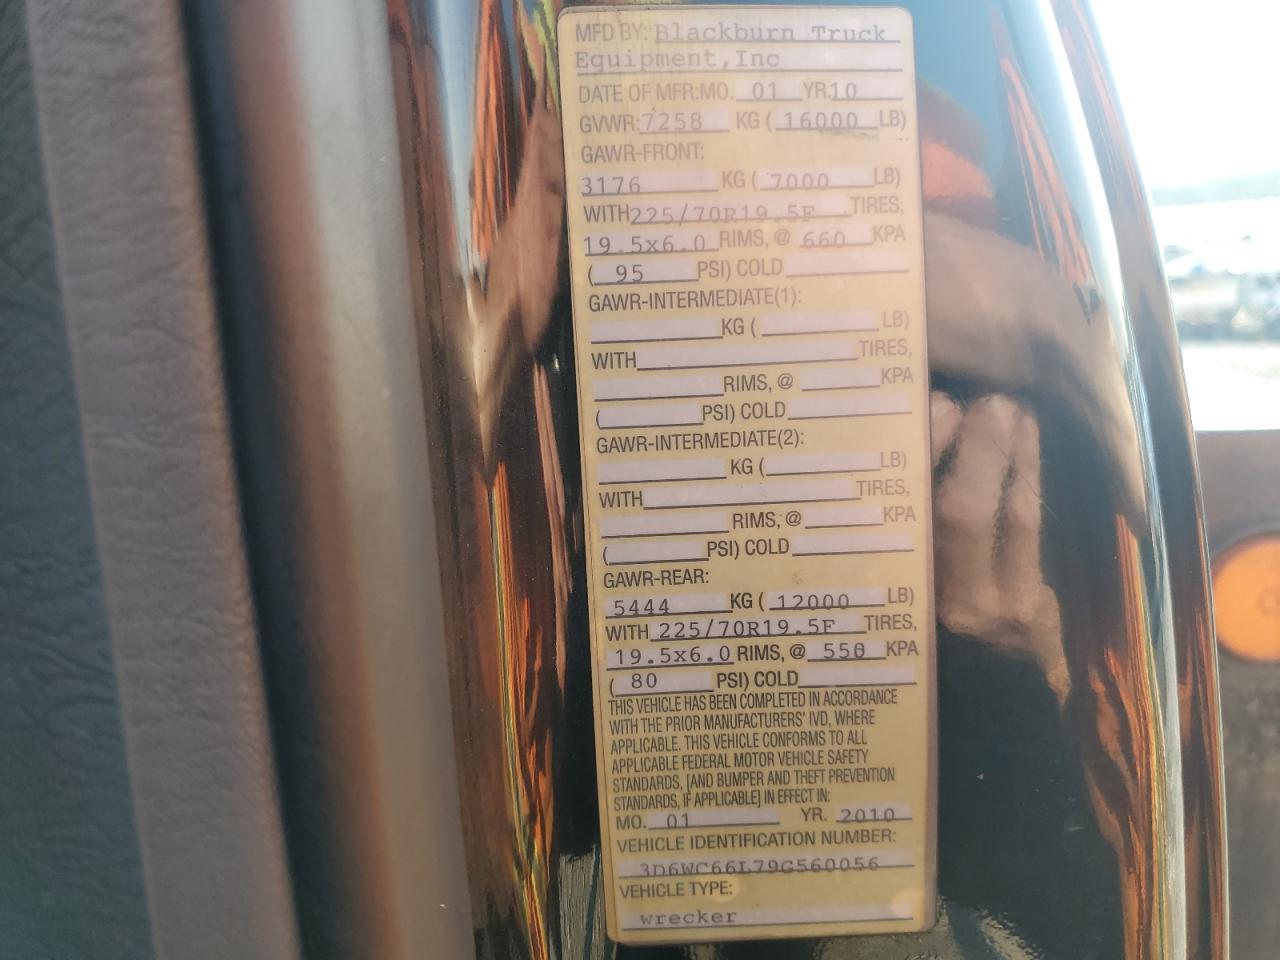 MFD BY: Blackburn Truck
Equipment,Inc
DATE OF MFR:MO. 01 YR.10
GVWR:7258 KG ( 16000 LB)
GAWR-FRONT:
3176 KG ( 7000 LB)
WITH 225/70R19.5F TIRES,
19.5x6.0 RIMS, @ 660 KPA
( 95 PSI) COLD
GAWR-INTERMEDIATE(1):
KG ( LB)
WITH TIRES,
RIMS, @ KPA
( PSI) COLD
GAWR-INTERMEDIATE(2):
KG ( LB)
WITH TIRES,
RIMS, @ KPA
( PSI) COLD
GAWR-REAR:
5444 KG ( 12000 LB)
WITH 225/70R19.5F TIRES,
19.5x6.0 RIMS, @ 550 KPA
( 80 PSI) COLD
THIS VEHICLE HAS BEEN COMPLETED IN ACCORDANCE
WITH THE PRIOR MANUFACTURERS' IVD, WHERE
APPLICABLE. THIS VEHICLE CONFORMS TO ALL
APPLICABLE FEDERAL MOTOR VEHICLE SAFETY
STANDARDS, [AND BUMPER AND THEFT PREVENTION
STANDARDS, IF APPLICABLE] IN EFFECT IN:
MO. 01 YR. 2010
VEHICLE IDENTIFICATION NUMBER:
3D6WC66L79G560056
VEHICLE TYPE:
wrecker